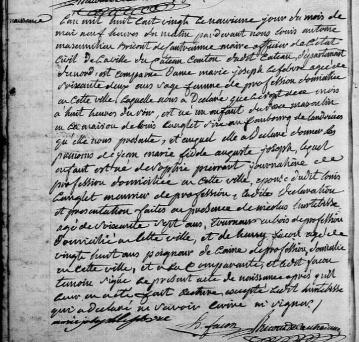 naissance
L'an mil huit cent vingt le neuvieme jour du mois de
mai neuf heures du matin pardevant nous Louis antoine
maximilien Bricout de cantraine maire officier de l'état
civil de la ville du Cateau Canton du dit Cateau, département
du nord, est comparue Dame marie joseph age de
soixante deux ans sage femme de profession domiciliée
en cette ville, laquelle nous a Déclaré que
à huit heures du soir, est né un enfant du sexe masculin
en la maison de Louis Langlet sise au faubourg de landrecies
qu'elle nous presente, et auquel elle a Declaré donner les
prénoms de jean marie auguste joseph, lequel
enfant est né de sophie journalière de
profession domiciliée en cette ville, du dit Louis
Langlet meunier de profession, les dites Declaration
et presentation faites en presence de nicolas
agé de soixante sept ans, tourneur en bois de profession
Domicilié en cette ville, et de henry facon agé de
vingt huit ans peigneur de laine de profession, domicilié
en cette ville, et a la comparante, et le dit facon
temoins signé le present acte de naissance après qu'il
leur en a été fait lecture excepté le dit
qui a declaré ne savoir écrire ni signer /
h. facon